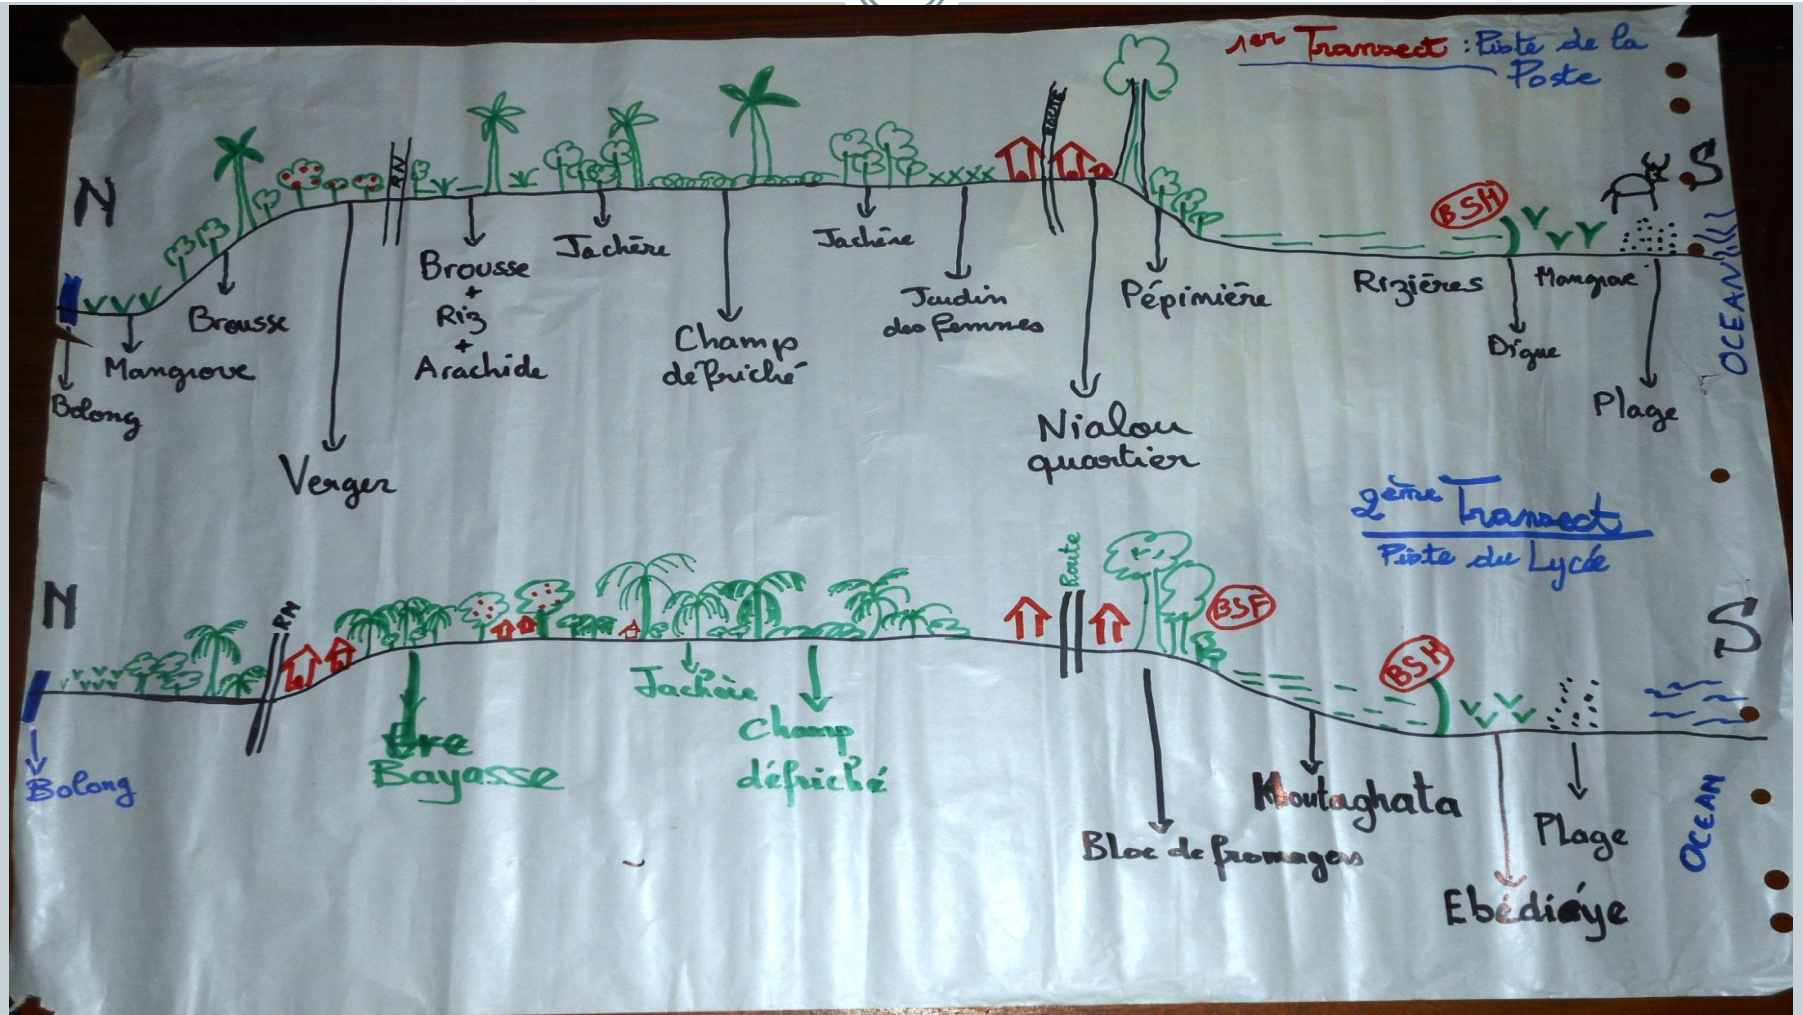 1er Transect : Piste de la
Poste
N
RN
ROUTE
BSH
S
Bolong
Mangrove
Brousse
Verger
Brousse
+
Riz
+
Arachide
Jachère
Champ
défriché
Jachère
Jardin
des femmes
Nialou
quartier
Pépinière
Rizières
Digue
Mangrove
Plage
OCEAN
2ème Transect
Piste du Lycée
N
RN
Route
BSF
BSH
S
Bolong
Ere
Bayasse
Jachère
Champ
défriché
Bloc de fromagers
Koutaghata
Ebédiaye
Plage
OCEAN